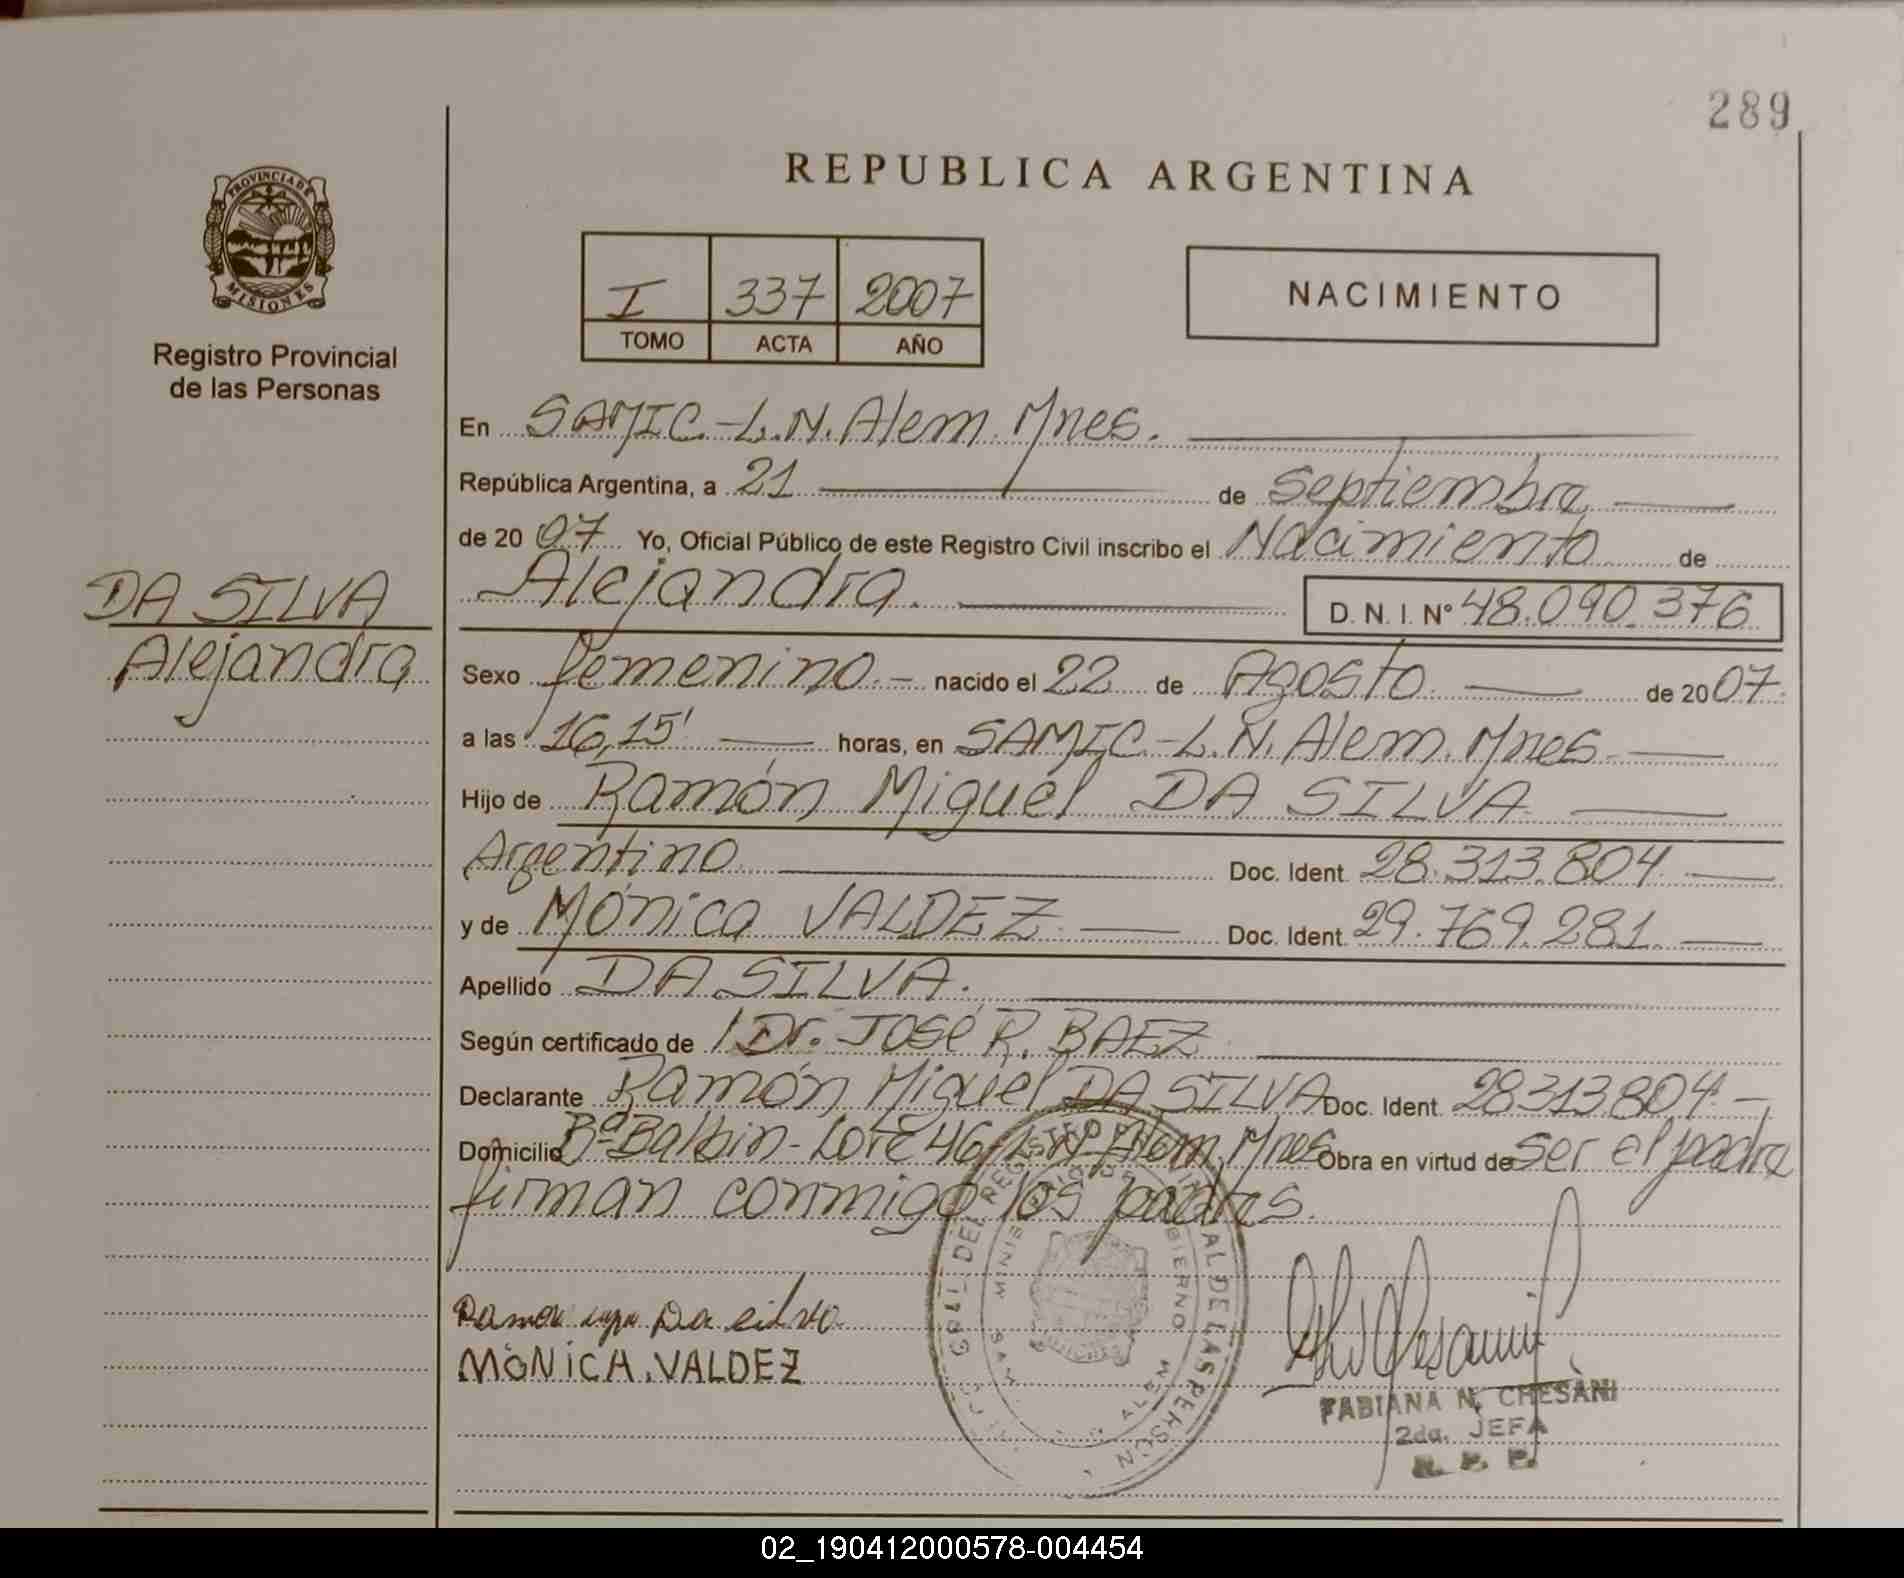 289
REPUBLICA ARGENTINA
PROVINCIA DE
MISIONES
Registro Provincial
de las Personas
I 337 2007
TOMO ACTA AÑO
NACIMIENTO
En SAMIC.-L.N.Alem. Mnes.
República Argentina, a 21 de Septiembre
de 2007 Yo, Oficial Público de este Registro Civil inscribo el Nacimiento de
DA SILVA
Alejandra
Alejandra. D. N. I. Nº 48.090.376
Sexo femenino.- nacido el 22 de Agosto de 2007.
a las 16,15' horas, en SAMIC.-L.N. Alem. Mnes
Hijo de Ramón Miguel DA SILVA
Argentino Doc. Ident. 28.313.804.
y de Mónica VALDEZ Doc. Ident. 29.769.281.
Apellido DA SILVA.
Según certificado de Dr. José R. BAEZ
Declarante Ramón Miguel DA SILVA Doc. Ident. 28313.804.-
Domicilio Bº Balbin-Lote 46 L.N. Alem. Mnes Obra en virtud de ser el padre
firman conmigo los padres.
Da silva
MÓNICA.VALDEZ
DEL REGISTRO PROVINCIAL DE LAS PERSON
FABIANA N. CHESANI
2da. JEFA
R. P. P.
02_190412000578-004454